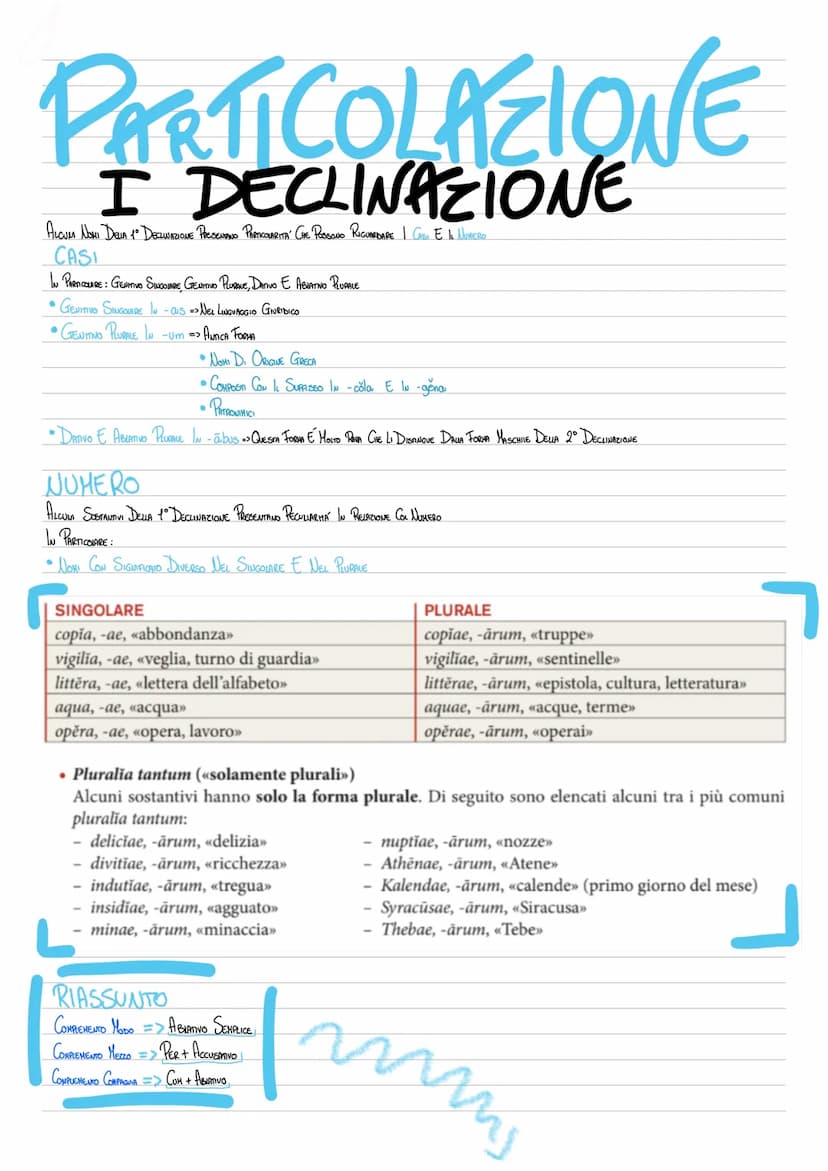 PARTICOLAZIONE
I DECLINAZIONE
ALCUNI NOMI DELLA 1° DECLINAZIONE PRESENTANO PARTICOLARITA' CHE POSSONO RIGUARDARE I CASI E IL NUMERO
CASI
IN PARTICOLARE: GENITIVO SINGOLARE, GENITIVO PLURALE, DATIVO E ABLATIVO PLURALE
• GENITIVO SINGOLARE IN -as => NEL LINGUAGGIO GIURIDICO
• GENITIVO PLURALE IN -um => ANTICA FORMA
• NOMI DI ORIGINE GRECA
• COMPOSTI CON IL SUFFISSO IN -cŏla E IN -gĕna
• PATRONIMICI
• DATIVO E ABLATIVO PLURALE IN -ābus => QUESTA FORMA E' MOLTO RARA CHE LI DISTINGUE DALLA FORMA MASCHILE DELLA 2° DECLINAZIONE
NUMERO
ALCUNI SOSTANTIVI DELLA 1° DECLINAZIONE PRESENTANO PECULIARITA' IN RELAZIONE COL NUMERO
IN PARTICOLARE:
• NOMI CON SIGNIFICATO DIVERSO NEL SINGOLARE E NEL PLURALE
SINGOLARE PLURALE
copĭa, -ae, «abbondanza» copĭae, -ārum, «truppe»
vigilĭa, -ae, «veglia, turno di guardia» vigilĭae, -ārum, «sentinelle»
littĕra, -ae, «lettera dell'alfabeto» littĕrae, -ārum, «epistola, cultura, letteratura»
aqua, -ae, «acqua» aquae, -ārum, «acque, terme»
opĕra, -ae, «opera, lavoro» opĕrae, -ārum, «operai»
• Pluralĭa tantum («solamente plurali»)
Alcuni sostantivi hanno solo la forma plurale. Di seguito sono elencati alcuni tra i più comuni
pluralĭa tantum:
– delicĭae, -ārum, «delizia» – nuptĭae, -ārum, «nozze»
– divitĭae, -ārum, «ricchezza» – Athēnae, -ārum, «Atene»
– indutĭae, -ārum, «tregua» – Kalendae, -ārum, «calende» (primo giorno del mese)
– insidĭae, -ārum, «agguato» – Syracūsae, -ārum, «Siracusa»
– minae, -ārum, «minaccia» – Thebae, -ārum, «Tebe»
RIASSUNTO
COMPLEMENTO MODO => ABLATIVO SEMPLICE
COMPLEMENTO MEZZO => PER + ACCUSATIVO
COMPLEMENTO COMPAGNIA => CUM + ABLATIVO